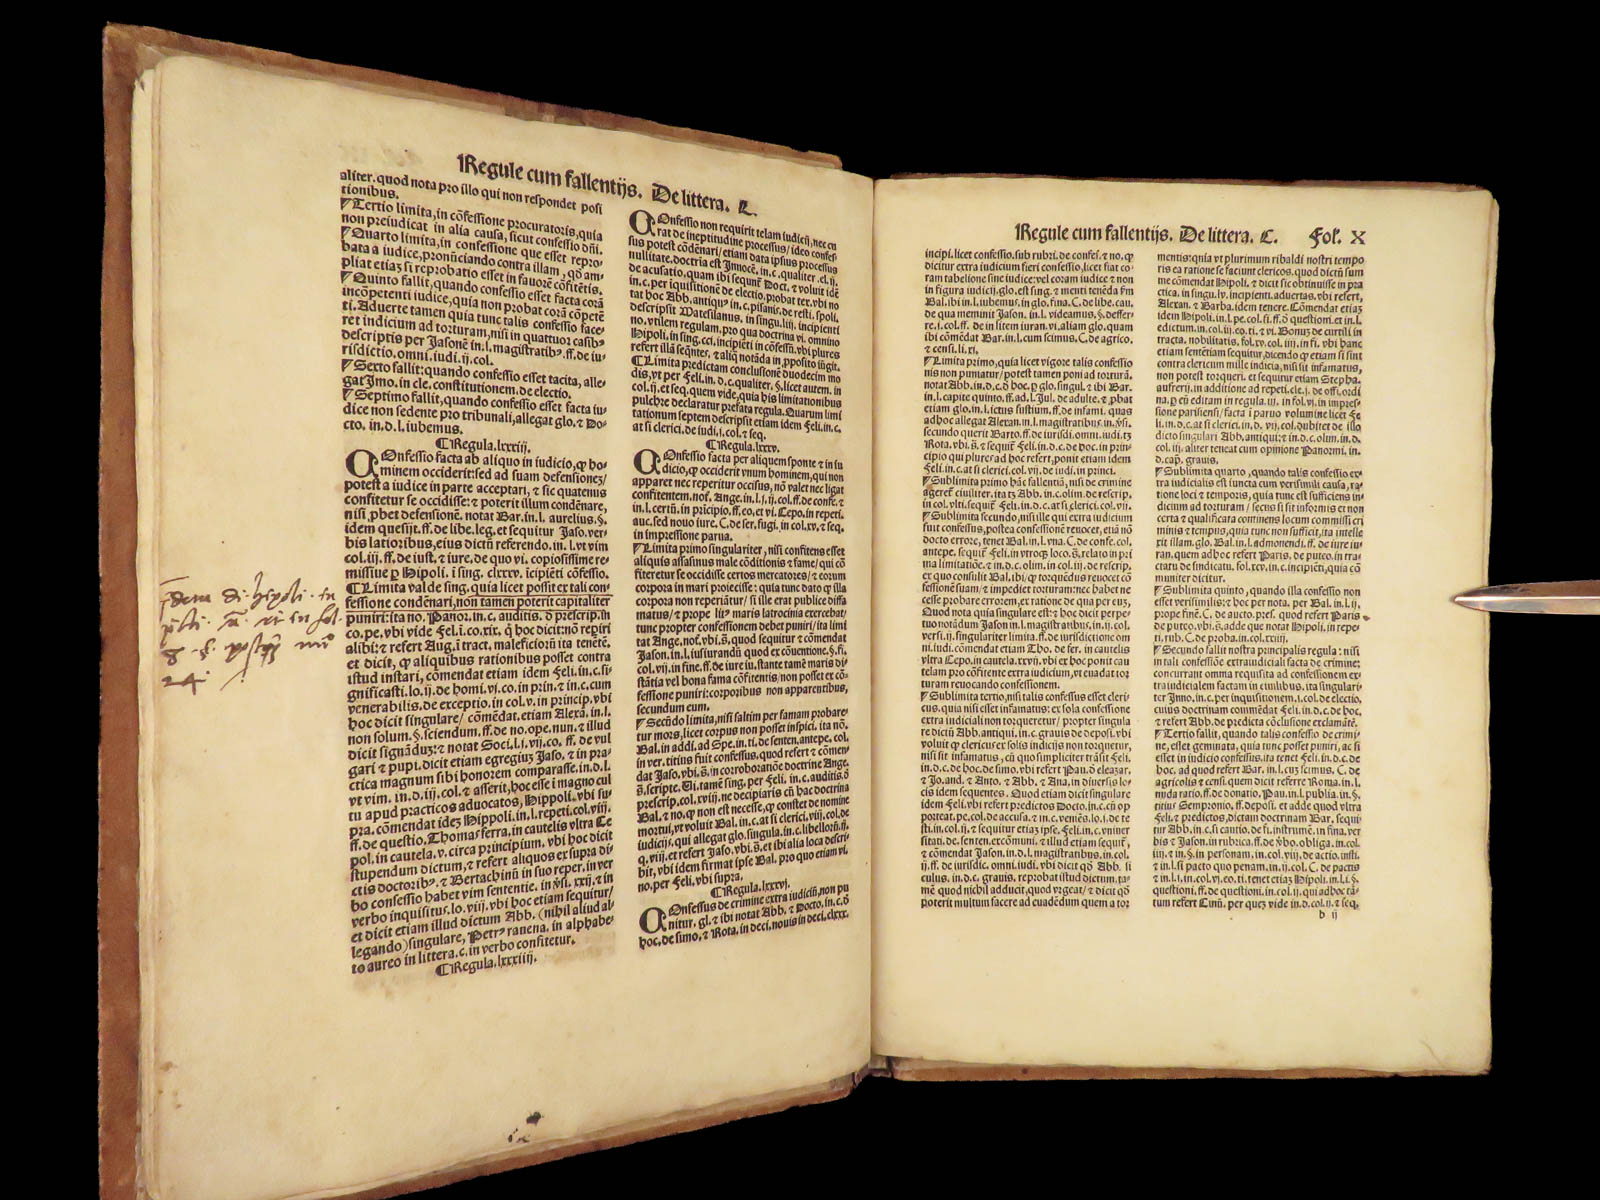 Regule cum fallentijs. De littera. C.
aliter. quod nota pro illo qui non respondet posi
tionibus.
Tertio limita, in cõfessione procuratoris, quia
non preiudicat in alia causa, sicut confessio dñi.
Quarto limita, in confessione que esset repro-
bata a iudice, pronũciando contra illam, qđ am-
pliat etiaz si reprobatio esset in fauorẽ cõfitẽtis.
Quinto fallit, quando confessio esset facta corã
incõpetenti iudice, quia non probat corã cõpetẽ
ti. Aduerte tamen quia tunc talis confessio face-
ret indicium ad torturam, nisi in quattuor casibꝰ
descriptis per Jasonẽ in. l. magistratibꝰ. ff. de iu-
risdictio. omni. iudi. ij. col.
Sexto fallit: quando confessio esset tacita, alle-
gat Imo. in cle. constitutionem. de electio.
Septimo fallit, quando confessio esset facta iu-
dice non sedente pro tribunali, allegat glo. ⁊ Do-
cto. in. d. l. iubemus.
Regula. lxxiij.
COnfessio facta ab aliquo in iudicio, qꝫ ho-
minem occiderit: sed ad suam defensionez/
potest a iudice in parte acceptari, ⁊ sic quatenus
confitetur se occidisse: ⁊ poterit illum condẽnare,
nisi ꝓbet defensionẽ. notat Bar. in l. aurelius. §.
idem quesijt. ff. de libe. leg. et sequitur Jaso. ver-
bis latioribus, eius dictũ referendo. in. l. vt vim
col. iij. ff. de iust. ⁊ iure. de quo vi. copiosissime re-
missiue ꝑ Hipoli. ĩ sing. clxxv. ĩcipiẽti cõfessio.
Limita valde sing. quia licet possit ex tali con-
fessione condẽnari, non tamen poterit capitaliter
puniri: ita no. Panor. in. c. auditis. đ prescrip. in
alibi: ⁊ refert Aug. ĩ tract. maleficiorũ ita tenẽtẽ.
et dicit, qꝫ aliquibus rationibus posset contra
istud instari, cõmendat etiam idem Feli. in. c. si-
gnificasti. lo. ij. de homi. vi. co. in prin. ⁊ in. c. cum
venerabilis. de exceptio. in col. v. in princip. vbi
hoc dicit singulare/ cõmẽdat. etiam Alexã. in. l.
non solum. §. sciendum. ff. de no. ope. nun. ⁊ illud
gari ⁊ pupi. dicit etiam egregiuz Jaso. ⁊ in pra-
ctica magnum sibi honorem comparasse. in. d. l.
vt vim. in. d. iij. col. ⁊ asserit, hoc esse ĩ magno cul
tu apud practicos aduocatos, Hippoli. vbi su-
pra. cõmendat idez Hippoli. in. l. repeti. col. viij.
ff. de questio. Thomas ferra. in cautelis vltra Ce
pol. in cautela. v. circa principium. vbi hoc dicit
stupendum dictum, ⁊ refert aliquos ex supra di-
ctis doctoribꝰ. ⁊ Bertachinũ in suo reper. in ver
bo confessio habet vim sententie. in ꝟsi. xxij. ⁊ in
verbo inquisitus. lo. viij. vbi hoc etiam sequitur/
et dicit etiam illud dictum Abb. (nihil aliud al-
legando) singulare, Petrꝰ ranena. in alphabe-
to aureo in littera. c. in verbo confitetur.
Regula. lxxxiiij.
COnfessio non requirit telam iudicij, nec cu
rat de ineptitudine processus/ ideo confes-
sus potest cõdẽnari/ etiam data ipsius processus
nullitate. doctria est Innocẽ. in. c. qualiter. el. ij.
de acusatio. quam ibi sequunt̃ Doct. ⁊ voluit idẽ
in. c. per iquisitionẽ de electio. probat tex. vbi no
tat hoc Abb. antiquꝰ in. c. pisanis. de resti. spoli.
descripsit Matesilanus. in singu. liij. incipienti
no. vtilem regulam. pro qua doctrina vi. omnino
Hipoli. in sing. cci. incipiẽti in cõfessũ. vbi plures
refert illã seqñtes, ⁊ aliq̃ notãda in ꝓposito iũgit.
Limita predictam conclusionẽ duodecim mo
dis, vt per Feli. in. d. c. qualiter. §. licet autem. in
col. ij. et seq. quem vide, quia his limitationibus
pulchre declaratur prefata regula. Quarum limi
tationum septem descripsit etiam idem Feli. in. c.
at si clerici. de iudi. j. col. ⁊ seq.
Regula. lxxxv.
COnfessio facta per aliquem sponte ⁊ in iu
dicio, qꝫ occiderit vnum hominem, qui non
apparet nec reperitur occisus, nõ valet nec ligat
confitentem. not. Ange. in. l. j. ij. col. ff. de confe. ⁊
in. l. certũ. in prĩcipio. ff. eo. et vi. Cepo. in repeti.
auc. sed nouo iure. C. de ser. fugi. in col. xv. ⁊ seq.
in impressione parua.
Limita primo singulariter, nisi confitens esset
aliquis assasinus male cõditionis ⁊ fame/ qui cõ
fiteretur se occidisse certos mercatores/ ⁊ eorum
corpora in mari proiecisse: quia tunc dato qꝫ illa
corpora non reperiãtur/ si ille erat publice diffa
matus/ ⁊ prope lit9 maris latrocinia exercebat/
tunc propter confessionem debet puniri/ ita limi
tat Ange. not. vbi. s̃. quod sequitur ⁊ cõmendat
Jason. in. l. iusiurandũ quod ex cõuentione. §. fi.
col. vij. in fine. ff. de iure iu. stante tamẽ maris di
stãtia vel bona fama cõfitentis/ non posset ex cõ-
fessione puniri: corporibus non apparentibus,
secundum eum.
Secũdo limita, nisi saltim per famam probare-
tur mors, licet corpus non posset inspici. ita nõ.
Bal. in addi. ad Spe. in. ti. de senten. antepe. col.
in ver. titius fuit confessus. quod refert ⁊ cõmen-
dat Jaso. vbi. s̃. in corroborationẽ doctrine Ange.
prescrip. col. xviij. ne decipiaris cũ hac doctrina
Bal. ⁊ no. qꝫ non est necesse, qꝫ constet de nomine
mortui, vt voluit Bal. in. c. at si clerici. viij. col. de
iudicijs, qui allegat glo. singula. in. c. libellorũ. ij.
q. viij. et refert Jaso. vbi. s̃. et ibi alia loca descri-
bit, vbi idem firmat ipse Bal. pro quo etiam vi.
no. per Feli. vbi supra.
Regula. lxxxvj.
COnfessus de crimine extra iudiciũ, non pu
nitur. gl. ⁊ ibi notat Abb. ⁊ Docto. in. c. đ
hoc. de simo. ⁊ Rota. in deci. nouis in deci. clxxx.
Regule cum fallentijs. De littera. C. Fol. X
incipi. licet confessio. sub rubri. de confes. ⁊ no. qꝫ
dicitur extra iudicium fieri confessio, licet fiat co-
ram tabelione sine iudice: vel coram iudice ⁊ non
in figura iudicij. glo. est sing. ⁊ menti tenẽda ẽm
Bal. ibi in. l. iubemus. in glo. fina. C. de libe. cau.
de qua meminit Jason. in. l. videamus. §. deffer-
re. i. col. ff. de in litem iuran. vi. aliam glo. quam
ibi cõmẽdat Bar. in. l. cum scimus. C. de agrico.
⁊ censi. li. xi.
Limita primo, quia licet vigore talis confessio
nis non puniatur/ potest tamen poni ad torturã.
notat Abb. in. d. c. đ hoc. ꝑ glo. singul. ⁊ ibi Bar.
in. l. capite quinto. ff. ad. l. Jul. de adulte. ⁊ ꝓbat
etiam glo. in. l. ictus fustium. ff. de infami. quas
ad hoc allegat Alexan. in. l. magistratibus. in ꝟsi.
secundo querit Barto. ff. de iurisdi. omni. iudi. tz
Rota. vbi. s̃. ⁊ sequit̃ Feli. in. d. c. de hoc. in prin-
cipio qui plures ad hoc refert, ponit etiam idem
Feli. in. c. at si clerici. col. vij. de iudi. in princi.
Sublimita primo hãc fallentiã, nisi de crimine
ageret̃ ciuiliter, ita tz Abb. in. c. olim. de rescrip.
in col. vlti. sequit̃ Feli. in. d. c. at si clerici. col. vij.
Sublimita secundo, nisi ille qui extra iudicium
fuit confessus, postea confessionẽ reuocet, etiã nõ
docto errore, tenet Bal. in. l. vna. C. de confe. col.
antepe. sequit̃ Feli. in vtroqꝫ loco. s̃. relato in pri
ma limitatiõe. ⁊ in. d. c. olim in col. xij. de rescrip.
ex quo consulit Bal. ibi, qꝫ torquẽdus reuocet cõ
fessionẽ suam/ ⁊ impediet torturam: nec habet ne
cesse probare errorem, ex ratione de qua per eum.
Quod nota quia singulare est: ⁊ hoc dicit perpe-
tuo notãdum Jason in. l. magistratibus, in. ij. col.
versi. ij. singulariter limita. ff. de iurisdictione om
ni. iudi. cõmendat etiam Tho. de fer. in cautelis
vltra Cepo. in cautela. xxvij. vbi ex hoc ponit cau
telam pro cõfitente extra iudicium, vt euadat tor
turam reuocando confessionem.
Sublimita tertio, nisi talis confessus esset cleri-
cus, quia nisi esset infamatus: ex sola confessione
extra iudiciali non torqueretur/ propter singula
re dictũ Abb. antiqui. in. c. grauis de deposi. vbi
voluit qꝫ clericus ex solis indicijs non torquetur,
nisi sit infamatus, cũ quo simpliciter trãsit Feli.
in. d. c. de hoc. de simo. vbi refert Pau. đ eleazar.
⁊ Jo. and. ⁊ Anto. ⁊ Abb. ⁊ Ana. in diuersis lo-
cis idem sequentes. Quod etiam dicit singulare
idem Feli. vbi refert predictos Docto. in. c. cũ op
porteat. pe. col. de accusa. ⁊ in. c. veniẽs. lo. i. de te
sti. in col. ij. ⁊ sequitur etiaz ipse. Feli. in. c. vniuer
sitatis. de senten. excõmuni. ⁊ illud etiam sequit̃,
⁊ cõmendat Jason. in. l. magistratibus. in. col.
ij. ff. de iurisdic. omni. iudi. vbi dicit qđ Abb. si
culus. in. d. c. grauis. reprobat istud dictum, ta-
mẽ quod nichil adducit, quod vrgeat/ ⁊ dicit qđ
poterit multum facere ad euadẽdum quem a tor
mentis: quia vt plurimum ribaldi nostri tempo
ris ea ratione se faciunt clericos. quod dictũ sum
me cõmendat Hipoli. ⁊ dicit sic obtinuisse in pra
ctica. in singu. lv. incipienti. aduertas. vbi refert,
Alexan. ⁊ Barba. idem tenere. Cõmendat etiaz
idem Hipoli. in. l. pe. col. si. ff. đ questioni. et in. l.
edictum. in. col. iij. eo. ti. ⁊ vi. Bonuz de curtili in
tracta. nobilitatis. fol. xv. col. iij. in fi. vbi hanc
etiam sentẽtiam sequitur, dicendo qꝫ etiam si sint
contra clericum mille indicia, nisi sit infamatus,
non potest torqueri. et sequitur etiam Stepha.
aufrerij. in additione ad repeti. cle. j. de offi. ordi
na. ꝑ eũ editam in regula. iij. in fol. vi. in impres-
sione parisiensi/ facta ĩ paruo volumine licet Fe
li. in. d. c. at si clerici. in. d. vij. col. dubitet de illo
dicto singulari Abb. antiqui: ⁊ in. d. c. olim. in. d.
col. iij. aliter teneat cum opinione Panormi. in.
d. cap̃. grauis.
Sublimita quarto, quando talis confessio ex-
tra iudicialis est iuncta cum verisimili causa, ra-
tione loci ⁊ temporis, quia tunc est sufficiens in-
dicium ad torturam/ secus si sit informis et non
certa ⁊ qualificata continens locum commissi cri
minis ⁊ tempus, quia tunc non sufficit, ita intelle
xit illam. glo. Bal. in. l. admonendi. ff. de iure iu-
ran. quem ad hoc refert Paris. de puteo. in tra-
ctatu de sindicatu. fol. xv. in. c. incipiẽti, quia cõ
muniter dicitur.
Sublimita quinto, quando illa confessio non
esset verisimilis: ⁊ hoc per nota. per Bal. in. l. ij.
prope finẽ. C. de aucto. prest. quod refert Paris
de puteo. vbi. s̃. adde que notat Hipoli. in repe-
ti. rub. C. de proba. in col. xxiiij.
Secundo fallit nostra principalis regula: nisi
in tali confessiõe extraiudiciali facta de crimine:
concurrant omnia requisita ad confessionem ex-
tra iudicialem factam in ciuilibus. ita singulari-
ter Imo. in. c. per inquisitionem. i. col. de electio.
cuius doctrinam commẽdat Feli. in. d. c. de hoc.
⁊ refert Abb. de predicta cõclusione exclamãtẽ.
Tertio fallit, quando talis confessio de crimi-
ne, esset geminata, quia tunc posset puniri, ac si
esset in iudicio confessus, ita tenet Feli. in. d. c. de
hoc. ad quod refert Bar. in. l. cuz scimus. C. de
agricolis ⁊ censi. quem dicit referre Roma. in. l.
nuda ratio. ff. de donatio. Pau. in. l. publia. in. §.
titius Sempronio. ff. deposi. et adde quod vltra
Feli. ⁊ predictos, dictam doctrinam Bar. sequi
tur Abb. in. c. si cautio. de fi. instrumẽ. in fina. ver
bis ⁊ Jasin in rubrica. ff. de ꝟbo. obliga. in. col.
iiij. ⁊ in. §. in personam. in. col. viij. de actio. insti.
⁊ in. l. si pacto quo penam. in. ij. col. C. de pactis
⁊ in. l. i. in. col. vi. eo. ti. tenet etiaz Hipoli. in. l. i. §.
questioni. ff. de questioni. in. col. ij. qui ad hoc tã-
tum refert Cinũ. per quez vide in. d. col. ij. ⁊ seq.
b ij